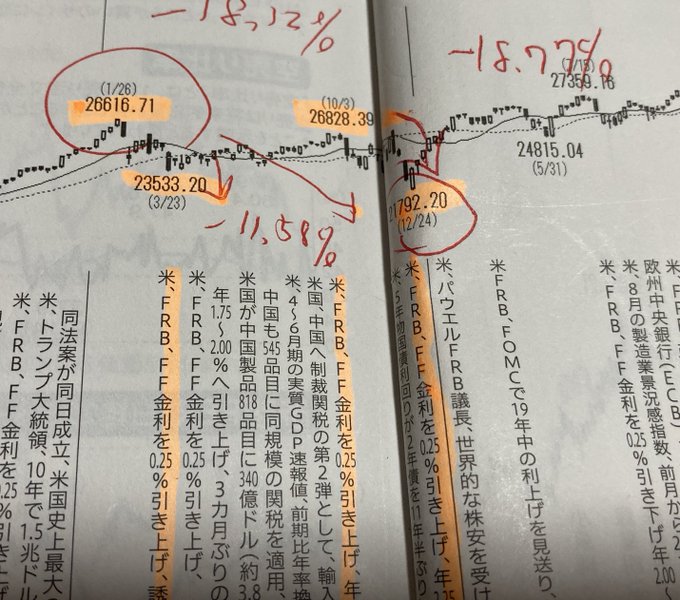 -18.12%
-18.77%
(1/26)
26616.71
(10/3)
26828.39
(7/15)
27359.16
23533.20
(3/23)
24815.04
(5/31)
21792.20
(12/24)
-11.58%
欧州中央銀行(ECB)
米、8月の製造業景況感指数、前月から2
米、FRB、FF金利を0.25%引き下げ年2.00~
米、FRB、FOMCで19年中の利上げを見送り、
米、パウエルFRB議長、世界的な株安を受け
米、FRB、FF金利を0.25%引き上げ、年2.25
米、5年物国債利回りが2年債を11年半ぶり
米、FRB、FF金利を0.25%引き上げ、年
米国、中国へ制裁関税の第2弾として、輸入
米、4~6月期の実質GDP速報値、前期比年率換
中国も545品目に同規模の関税を適用、
米国が中国製品818品目に340億ドル(約3.8
年1.75~2.00%へ引き上げ、3カ月ぶりの
米、FRB、FF金利を0.25%引き上げ、
米、FRB、FF金利を0.25%引き上げ、誘
同法案が同日成立、米国史上最大の
米、トランプ大統領、10年で1.5兆ドル
米、FRB、FF金利を0.25%引き上げ